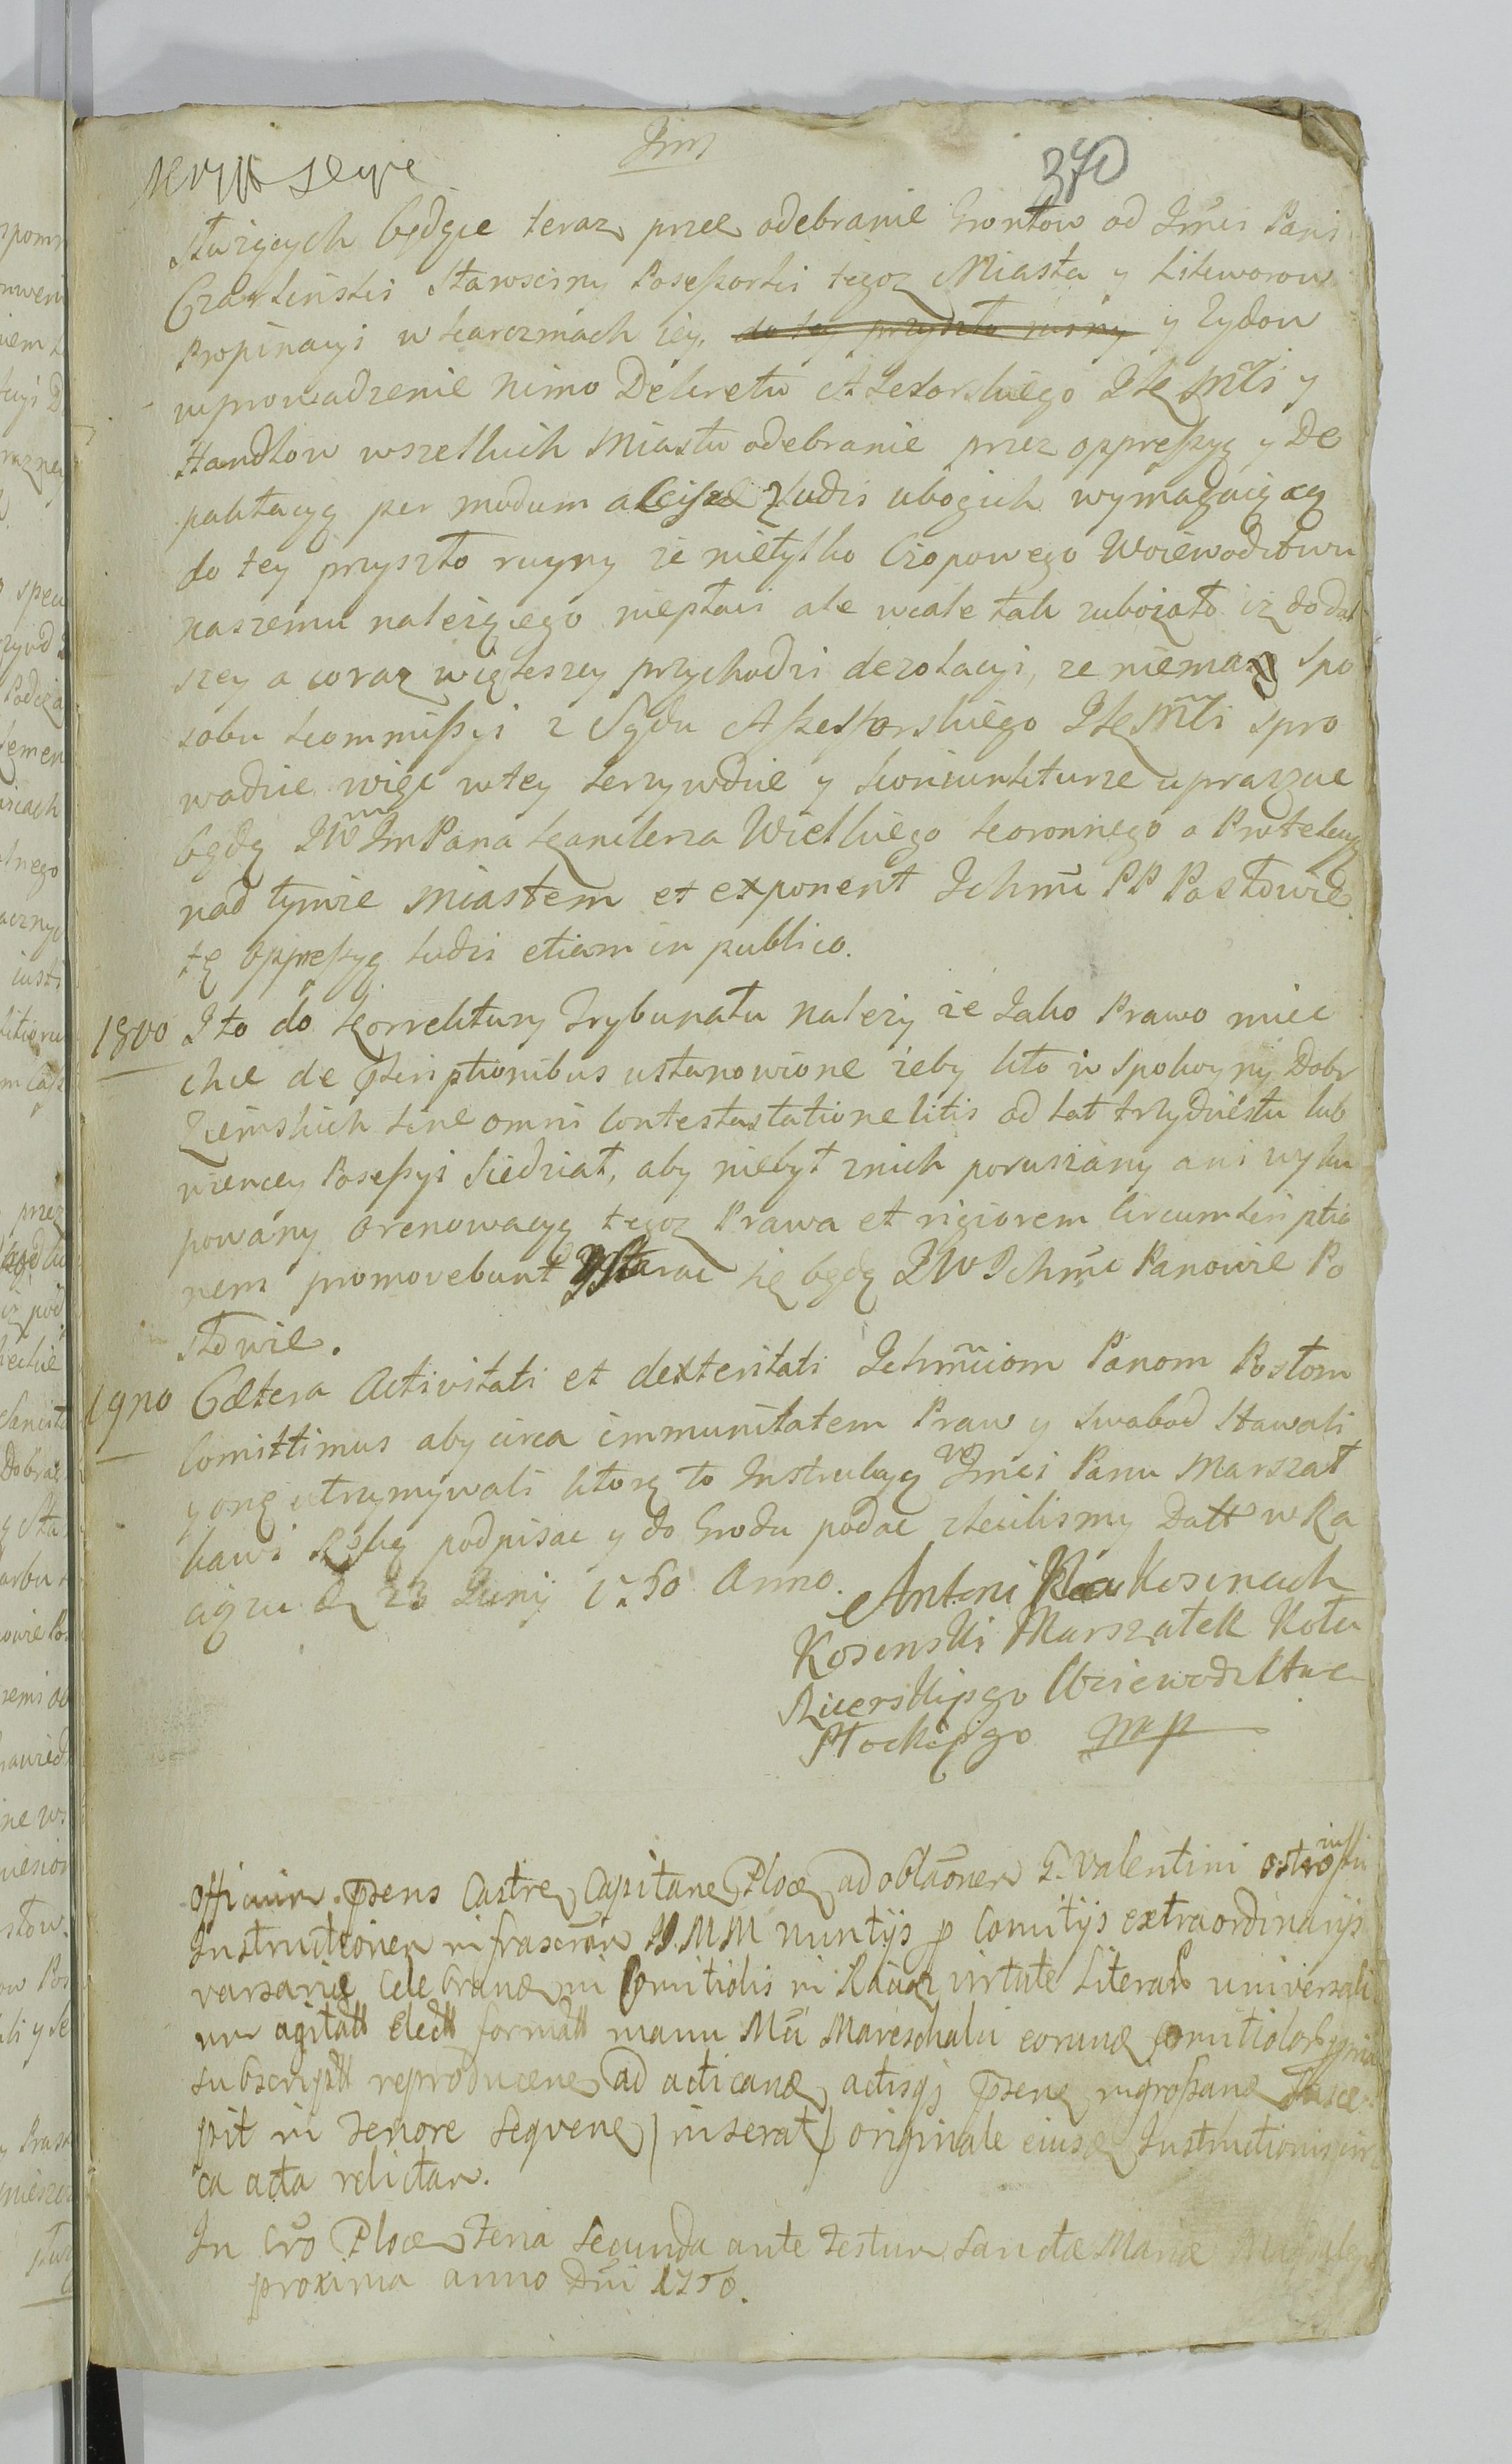 Jm
370
służących będące teraz przez odebranie Grontow od Jmci Pani
Czaplinski Starosciny Possessorki tegoz Miasta y Likworow
Propinacyi w karczmach iey, do tey przyszło ruiny y Zydow
wprowadzenie nimo Dekretu Assesorskiego JKMsci y
Handlow wszelkich Miastu odebranie przez oppressyą y De
paktacyą per modum akcize z ludzi ubogich wymagaiącą
do tey przyszło ruyny ze nietylko Czopowego Woiewodztwu
naszemu nalezącego niepłaci ale wcale tak zubozało iz do dal
szey a coraz większey przychodzi dezolacyi, ze niema Spo
sobu kommissyi z Sądu Assessorskiego JKMsci spro
wadzic więc w tey krzywdzie y koniunkturze upraszac
będą JW JmPana Kanclerza Wielkiego koronnego o Protekcyą
nad tymze Miastem et exponent Ichmć PP Posłowie
tę oppressyą ludzi etiam in publico.
18vo I to do korrektury Trybunału nalezy ze Jako Prawo miec
chce de praescriptionibus ustanowione zeby kto w Spokoyny Dobr
Ziemskich sine omni contestatione litis od lat trzydziestu lub
wiencey Possessyi siedział, aby niebył znich poruszany ani wyku
powany o renowacyą tegoz Prawa et rigiorem circumscriptio
nem promovebunt y starac się będą JW Ichmć Panowie Po
słowie.
19no Cætera Activitati et dexteritati Ichmciom Panom Posłom
Comittimus aby circa immunitatem Praw y Swabod Stawali
y one utrzymywali ktorą to Instrukcyą W Jmci Panu Marszał
kowi Ręką podpisac y do Grodu podac zlecilismy Datt w Ra
ciązu D 23 Junij 1750 Anno.
Antoni Kosinach
Kosinski Marszałek Koła
Rycerskiego Woiewodztwa
Płockiego mp
Officium præsens Castren Capitanea Plocen ad oblaonem G. Valentini Ostrowski
Instructionem infrascram MM nuntijs p Comitijs extraordinarijs
varsaviæ celebrand in Comitiolis in Raciąz virtute Literar universali
um agitatt elect formatt manu Mci Mareschalci eorund Comitiolor
subscriptt reproducen ad acticand actisqs præsen ingrossand susce
pit in tenore sequen inserat originale eiusd Instructionis cir
ca acta relictam.
In Cro Plocen Feria Secunda ante Festum Sanctæ Mariæ Magdalenæ
proxima anno Dni 1750.